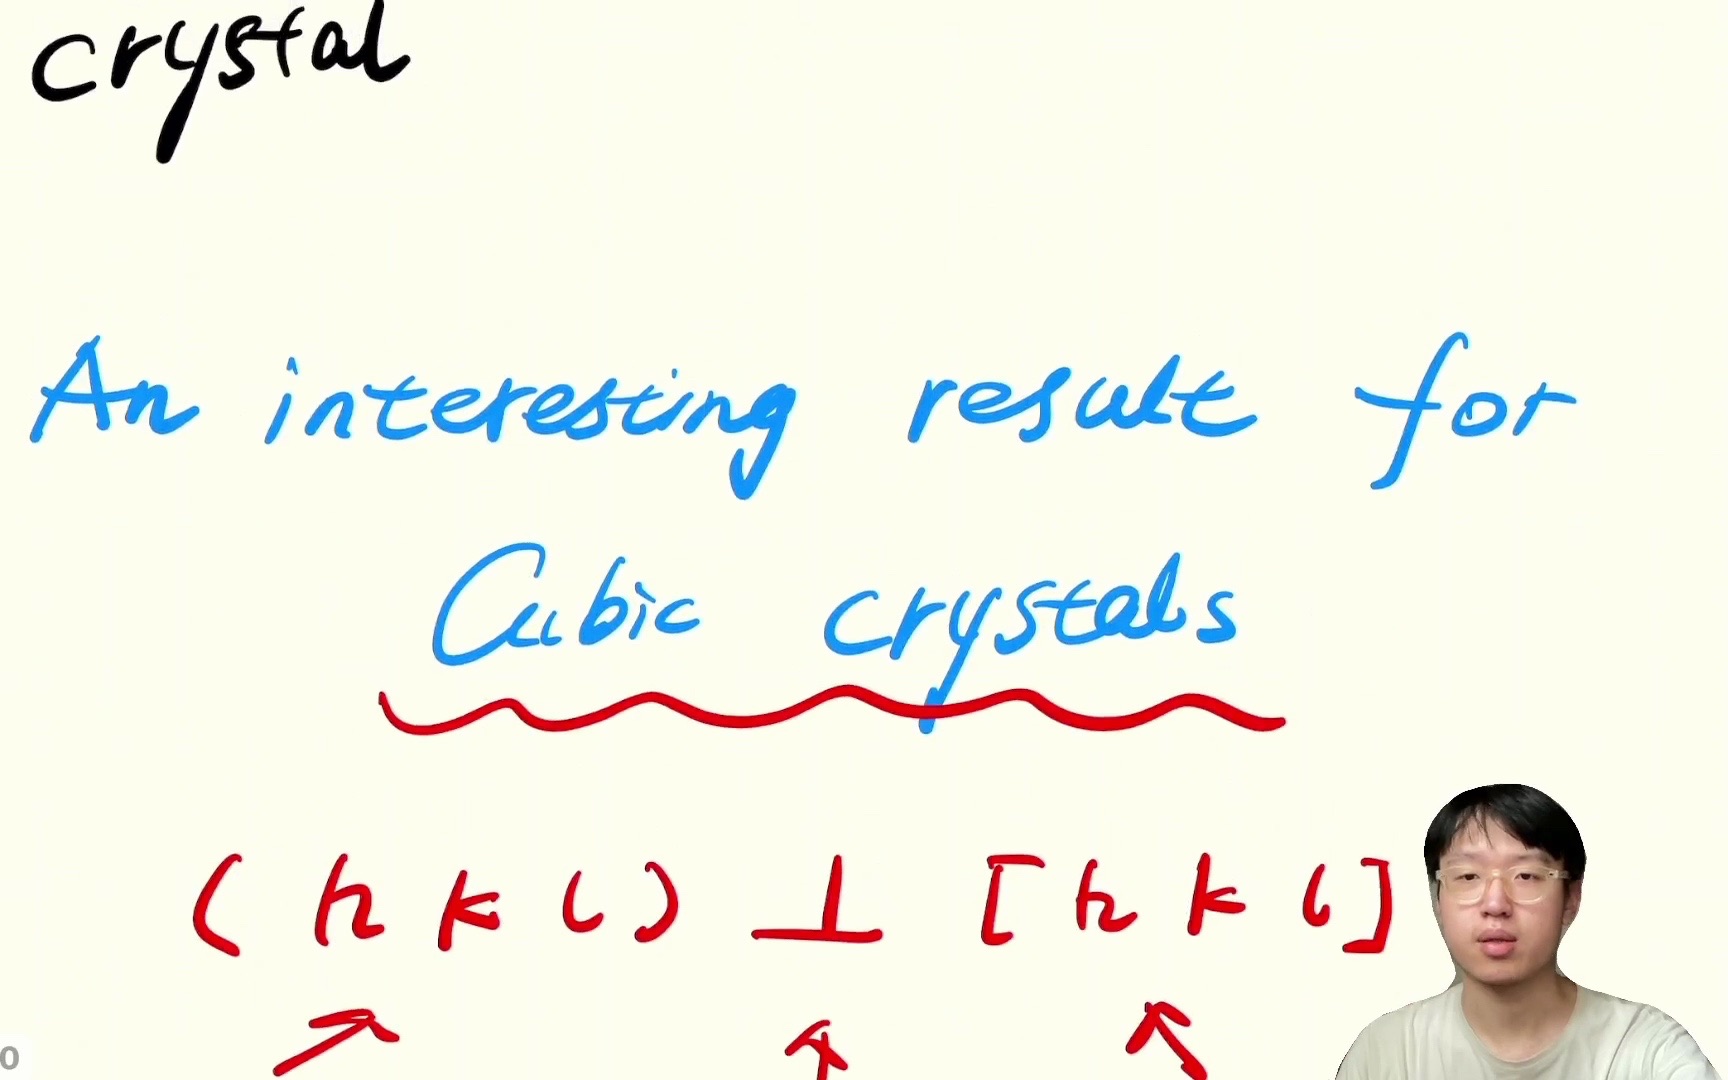 crystal
An interesting result for
Cubic crystals
(h k l) ⊥ [h k l]
0